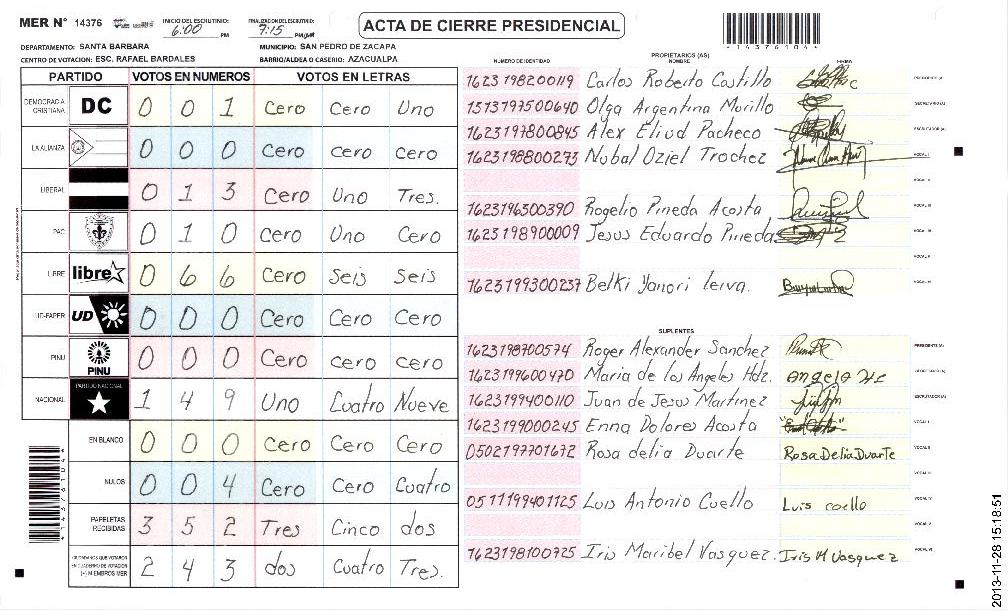 MER N° 14376
INICIO DEL ESCRUTINIO: 6:00 PM
FINALIZACION DEL ESCRUTINIO: 7:15 PM
ACTA DE CIERRE PRESIDENCIAL
DEPARTAMENTO: SANTA BARBARA
MUNICIPIO: SAN PEDRO DE ZACAPA
CENTRO DE VOTACION: ESC. RAFAEL BARDALES
BARRIO/ALDEA O CASERIO: AZACUALPA
PARTIDO VOTOS EN NUMEROS VOTOS EN LETRAS
DEMOCRACIA CRISTIANA DC 0 0 1 Cero Cero Uno
LA ALIANZA 0 0 0 Cero Cero Cero
LIBERAL 0 1 3 Cero Uno Tres.
PAC 0 1 0 Cero Uno Cero
LIBRE libre 0 6 6 Cero Seis Seis
UD-FAPER UD 0 0 0 Cero Cero Cero
PINU PINU 0 0 0 Cero Cero Cero
NACIONAL PARTIDO NACIONAL 1 4 9 Uno Cuatro Nueve
EN BLANCO 0 0 0 Cero Cero Cero
NULOS 0 0 4 Cero Cero Cuatro
PAPELETAS RECIBIDAS 3 5 2 Tres Cinco dos
CIUDADANOS QUE VOTARON EN CUADERNO DE VOTACION (+) MIEMBROS MER 2 4 3 dos Cuatro Tres.
PROPIETARIOS (AS)
NUMERO DE IDENTIDAD NOMBRE FIRMA
1623198200119 Carlos Roberto Castillo PRESIDENTE (A)
1513197500640 Olga Argentina Murillo SECRETARIO (A)
1623197800845 Alex Eliud Pacheco ESCRUTADOR (A)
1623198800273 Nubal Oziel Trochez VOCAL I
VOCAL II
1623196500390 Rogelio Pineda Acosta VOCAL III
1623198900009 Jesus Eduardo Pineda VOCAL IV
VOCAL V
1623199300237 Belki Yanori leiva. VOCAL VI
SUPLENTES
1623198700574 Roger Alexander Sanchez PRESIDENTE (A)
1623199600470 Maria de los Angeles Hdz. SECRETARIO (A)
1623199400110 Juan de Jesus Martinez ESCRUTADOR (A)
1623199000245 Enna Dolores Acosta VOCAL I
0502197701672 Rosa delia Duarte Rosa Delia Duarte VOCAL II
VOCAL III
0511199401125 Luis Antonio Cuello Luis coello VOCAL IV
VOCAL V
1623198100725 Iris Maribel Vasquez. Iris M Vasquez VOCAL VI
2013-11-28 15:18:51